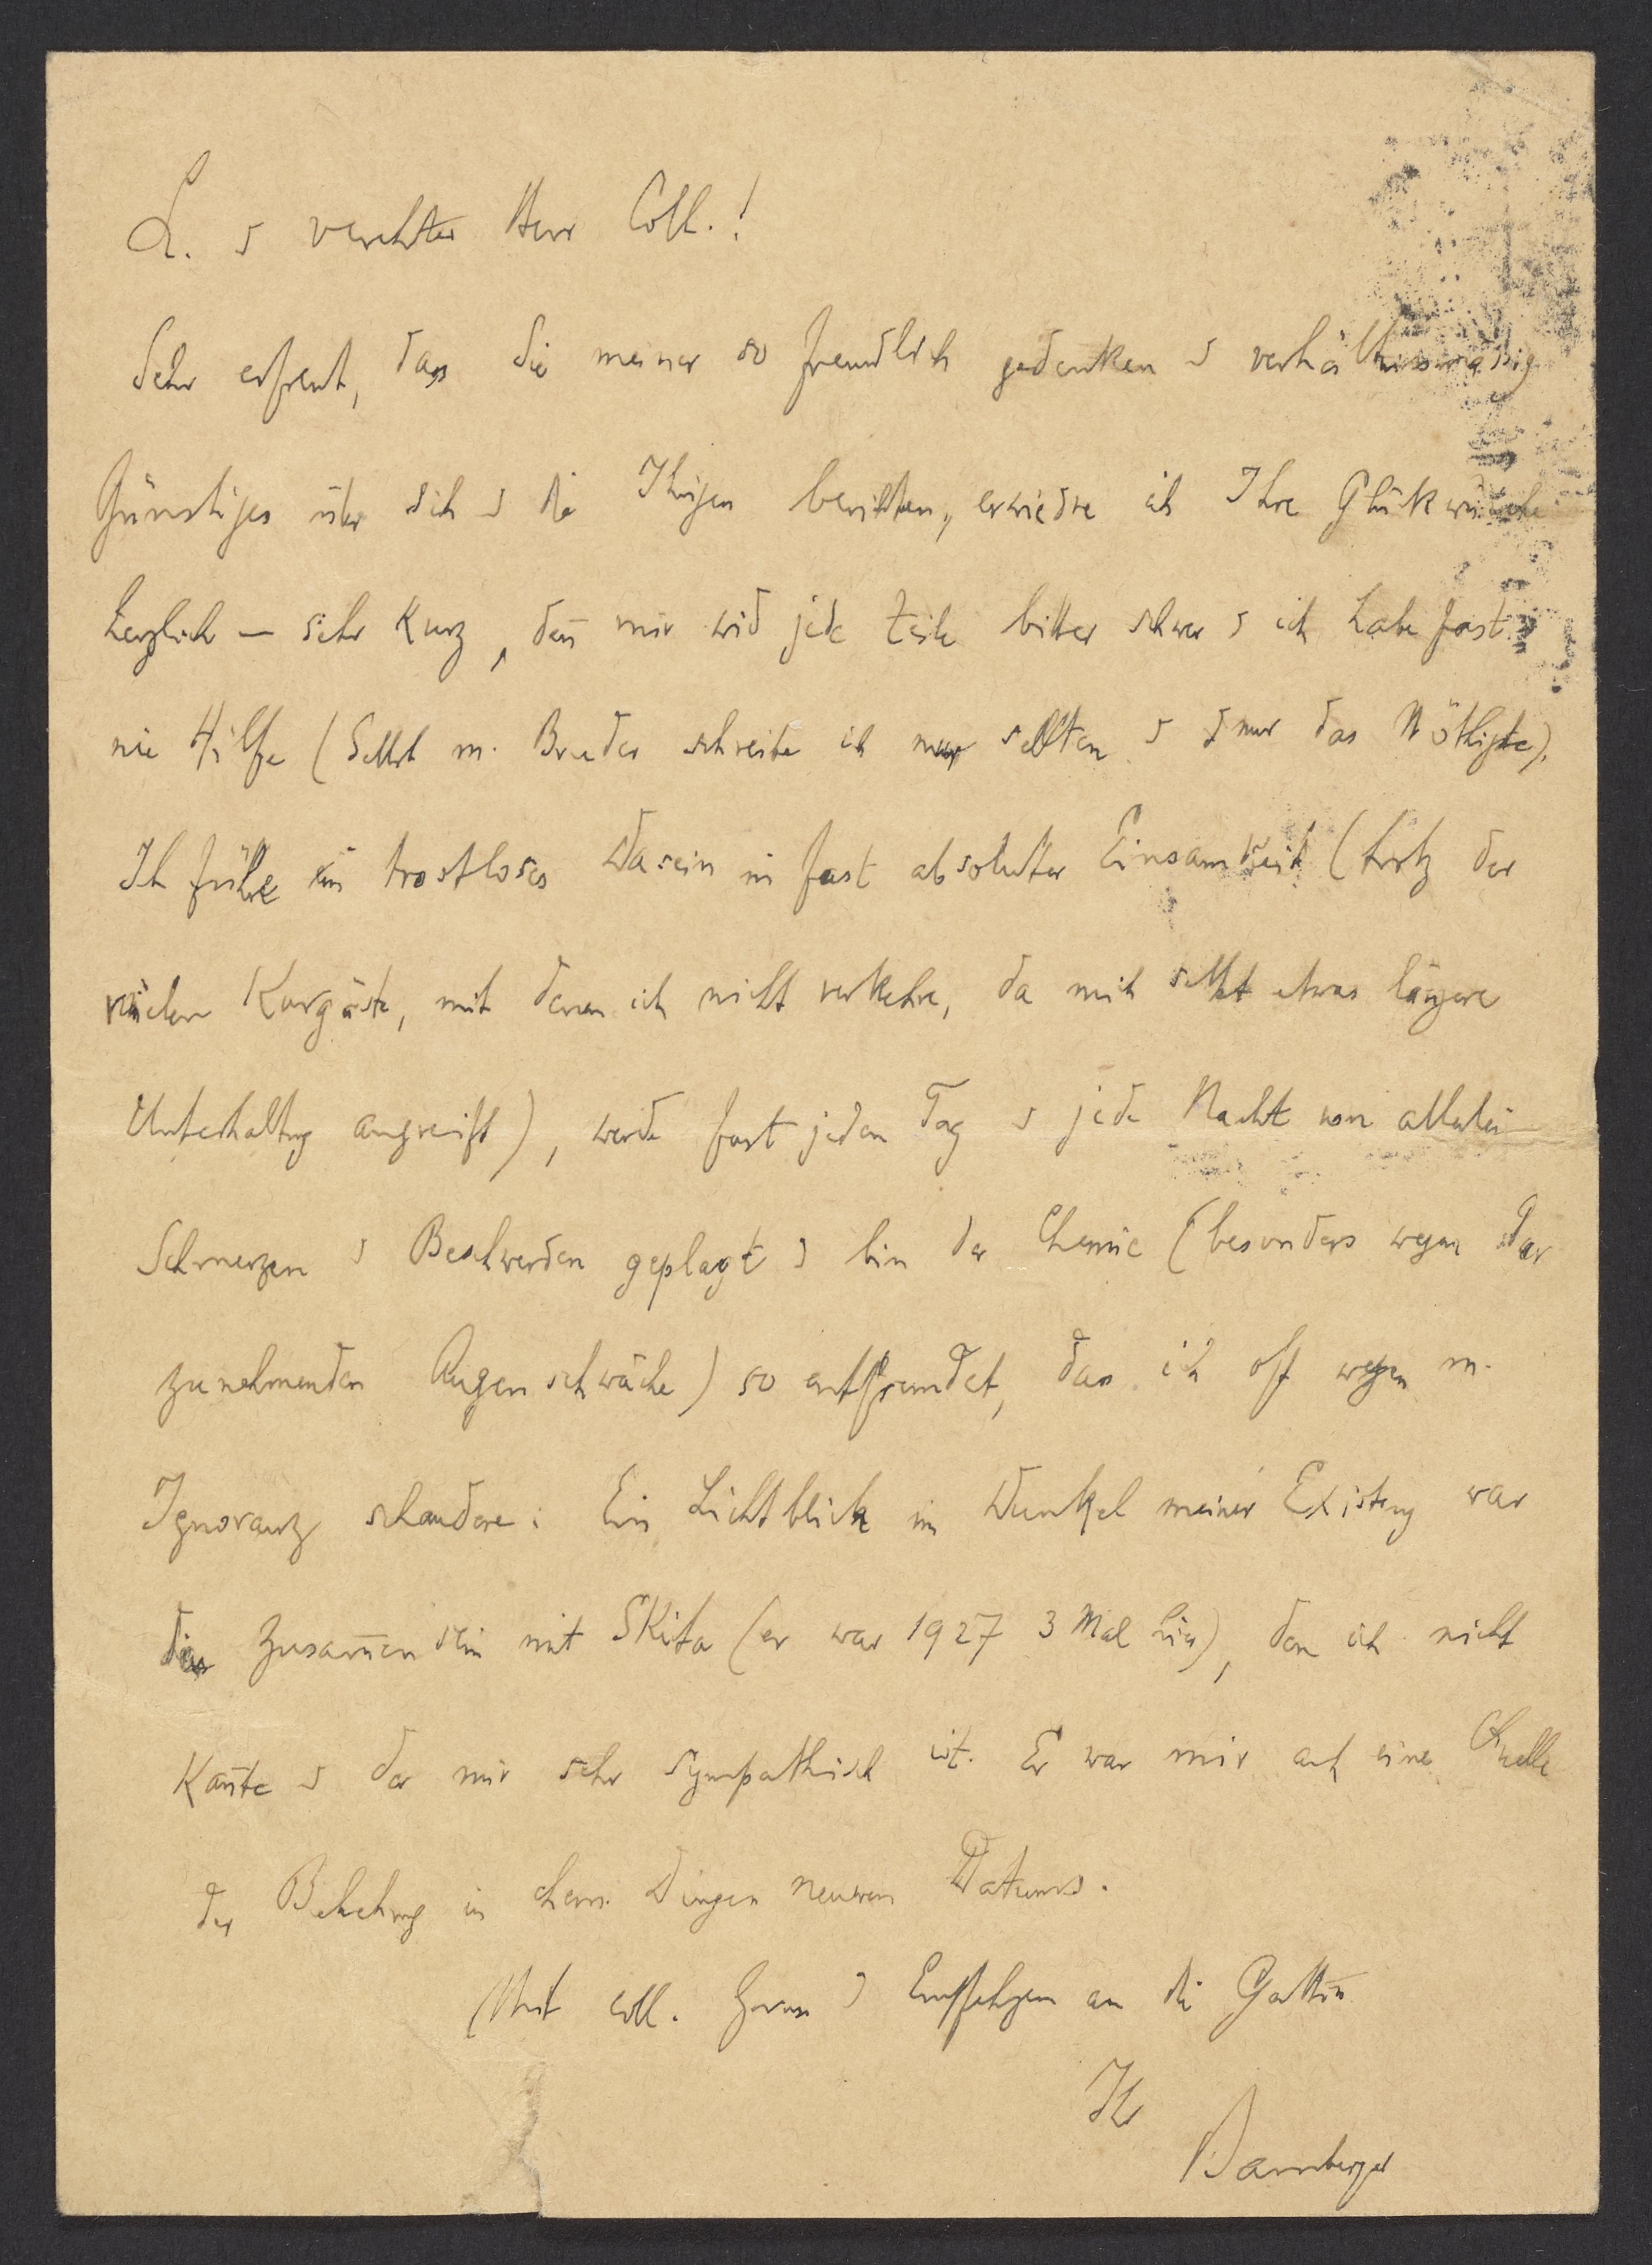 L. u verehrter Herr Coll.!
Sehr erfreut, dass Sie meiner so freundlich gedenken u verhältnissmässig
Günstiges über sich u die Ihrigen berichten, erwiedre ich Ihre Glückwünsche
herzlich – sehr kurz, deñ mir wird jede Zeile bitter schwer u ich habe fast
nie Hilfe (Selbst m. Bruder schreibe ich nur selten u nur das Nöthigste).
Ich führe ein trostloses Dasein in fast absoluter Einsamkeit (trotz der
vielen Kurgäste, mit denen ich nicht verkehre, da mich selbst etwas längere
Unterhaltung angreift), werde fast jeden Tag u jede Nacht von allerlei
Schmerzen u Beschwerden geplagt u bin der Chemie (besonders wegen der
zunehmenden Augenschwäche) so entfremdet, dass ich oft wegen m.
Ignoranz schaudere. Ein Lichtblick im Dunkel meiner Existenz war
das Zusam̄ensein mit Skita (er war 1927 3 Mal hier), den ich nicht
kañte u der mir sehr sympathisch ist. Er war mir auch eine Quelle
der Belehrung in chem. Dingen neueren Datums.
Mit coll. Gruss u Empfehlgen an die Gattin
Ihr
Bamberger